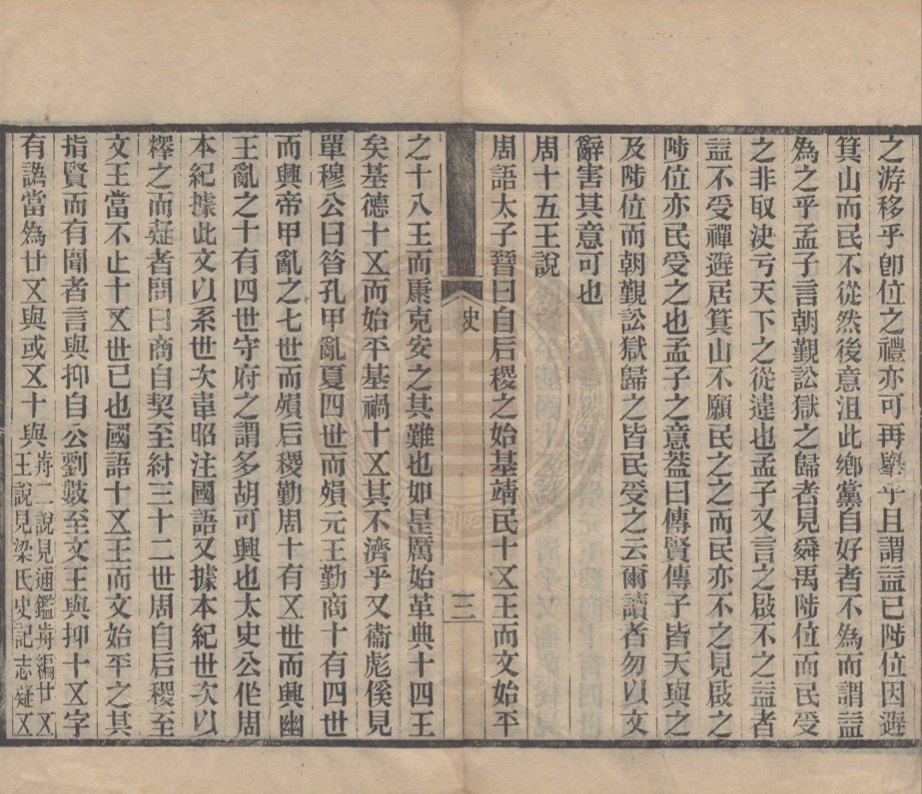 之游移乎卽位之禮亦可再舉乎且謂益已陟位因遯
箕山而民不從然後意沮此鄉黨自好者不為而謂益
為之乎孟子言朝覲訟獄之歸者見舜禹陟位而民受
之非取決亏天下之從違也孟子又言之啟不之益者
益不受禪遯居箕山不願民之之而民亦不之見啟之
陟位亦民受之也孟子之意葢曰傳賢傳子皆天與之
及陟位而朝覲訟獄歸之皆民受之云爾讀者勿以文
辭害其意可也
周十五王說
周語太子晉曰自后稷之始基靖民十㐅王而文始平
史
三
之十八王而康克安之其難也如是厲始革典十四王
矣基德十㐅而始平基禍十㐅其不濟乎又衞彪傒見
單穆公曰昝孔甲亂夏四世而殞元王勤商十有四世
而興帝甲亂之七世而殞后稷勤周十有㐅世而興幽
王亂之十有四世守府之謂多胡可興也太史公作周
本紀據此文以系世次韋昭注國語又據本紀世次以
釋之而疑者問曰商自契至紂三十二世周自后稷至
文王當不止十㐅世已也國語十㐅王而文始平之其
指賢而有聞者言與抑自公劉數至文王與抑十㐅字
有譌當為廿㐅與或㐅十與歬二說見通鑑歬編廿㐅王說見梁氏史記志疑㐅